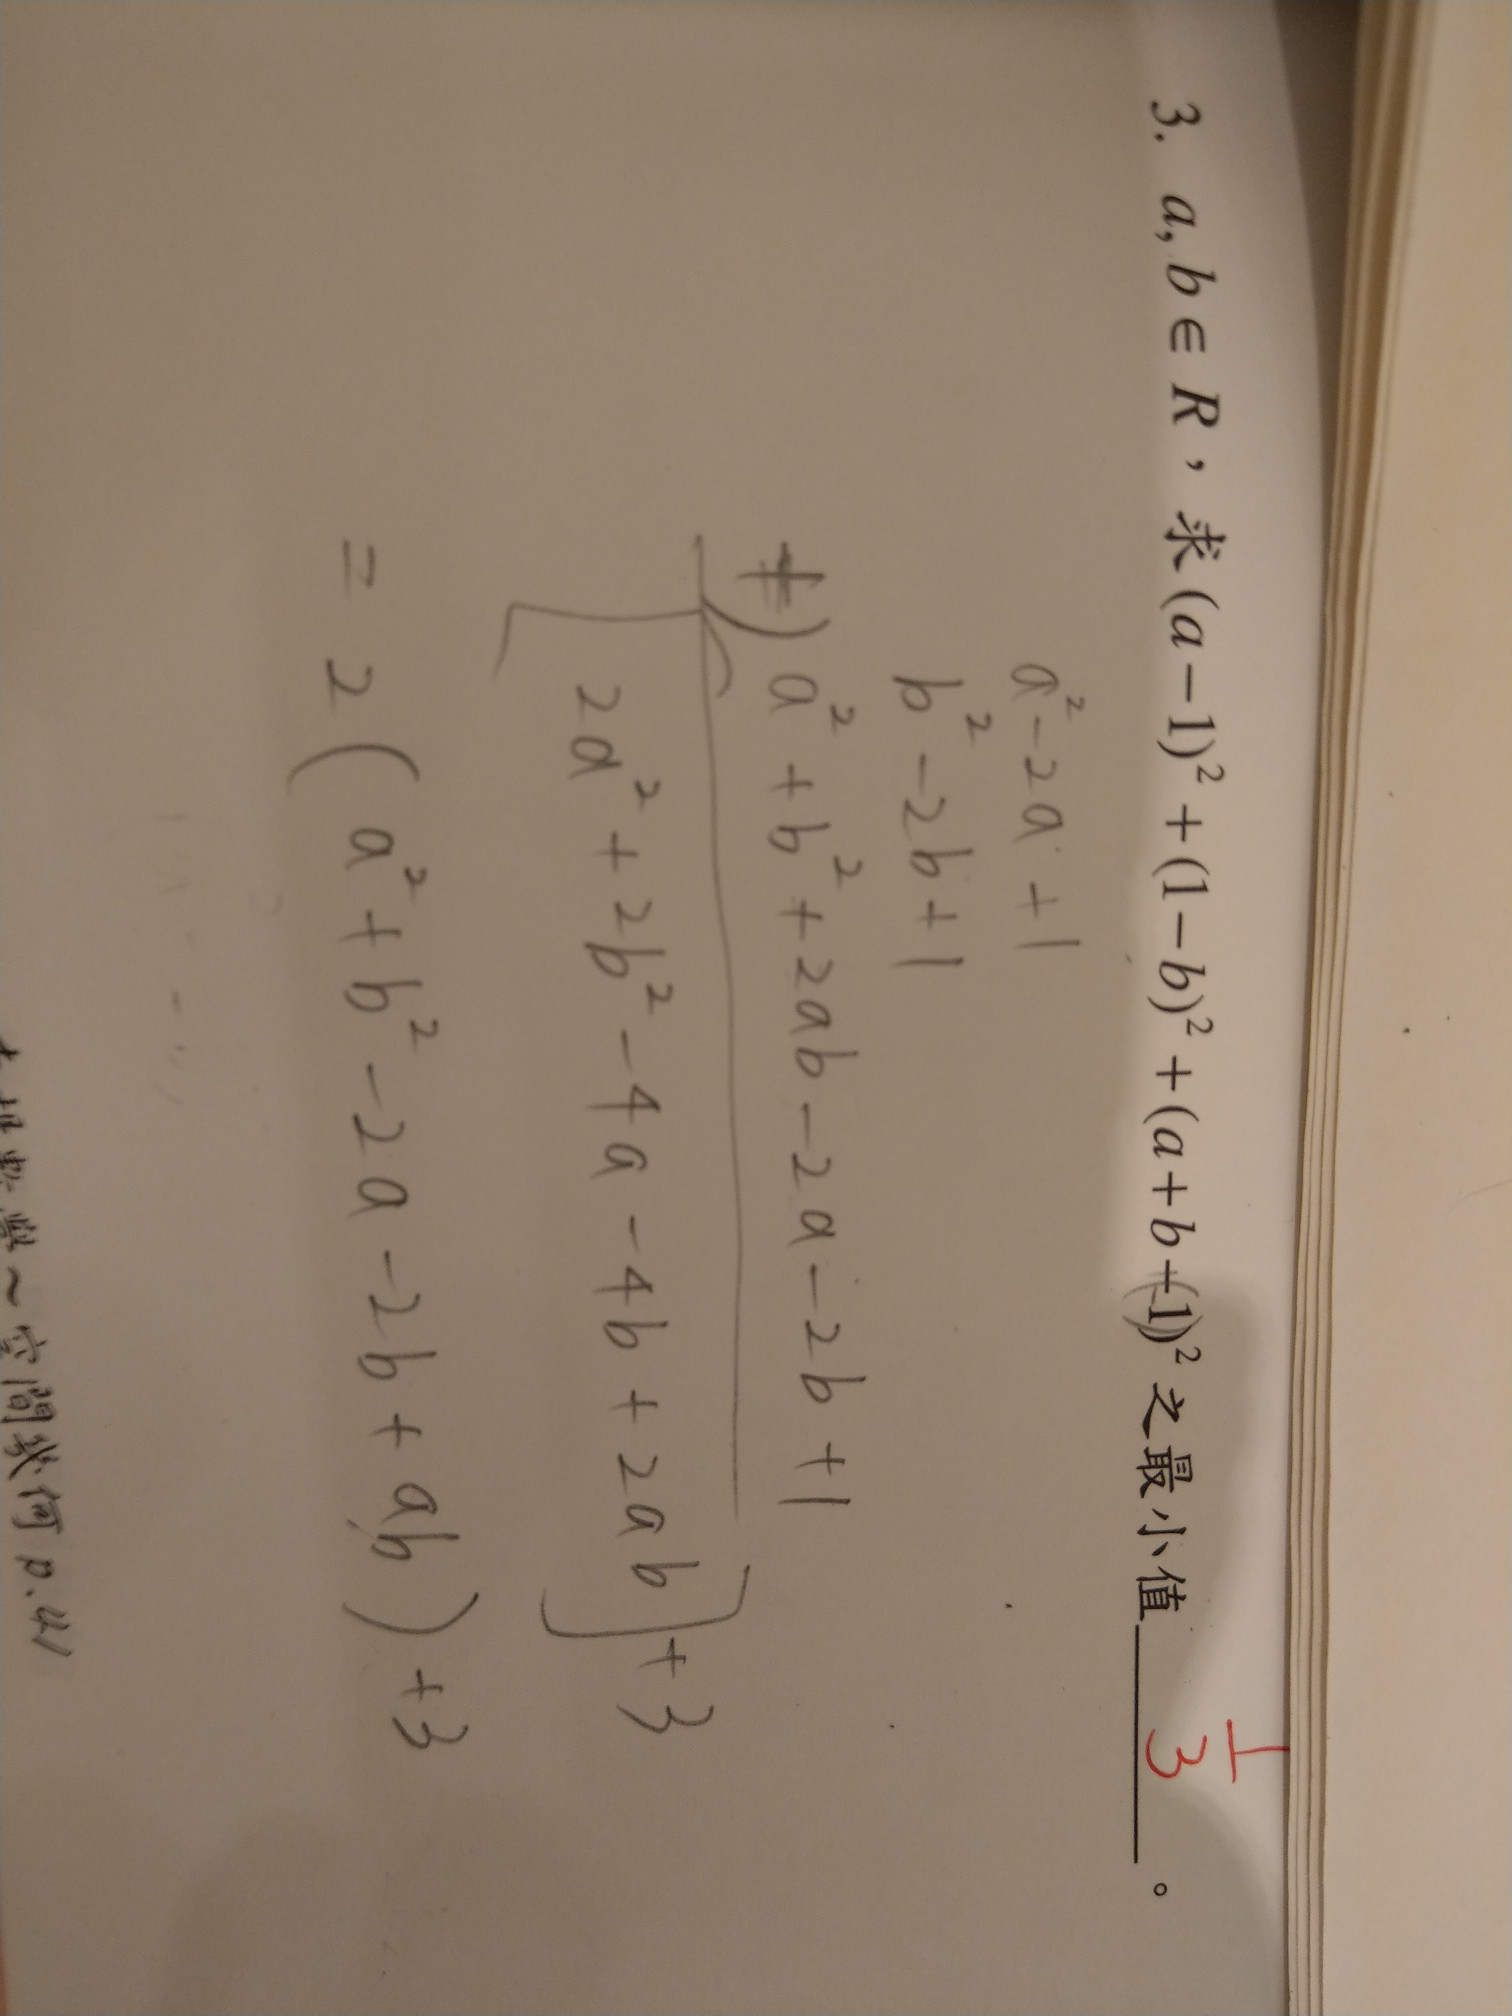 3. a, b ∈ R，求(a−1)²+(1−b)²+(a+b−1)²之最小值 1/3 。
a²−2a+1
b²−2b+1
+) a²+b²+2ab−2a−2b+1
[2a²+2b²−4a−4b+2ab]+3
= 2(a²+b²−2a−2b+ab)+3
數學～空間幾何 p.41